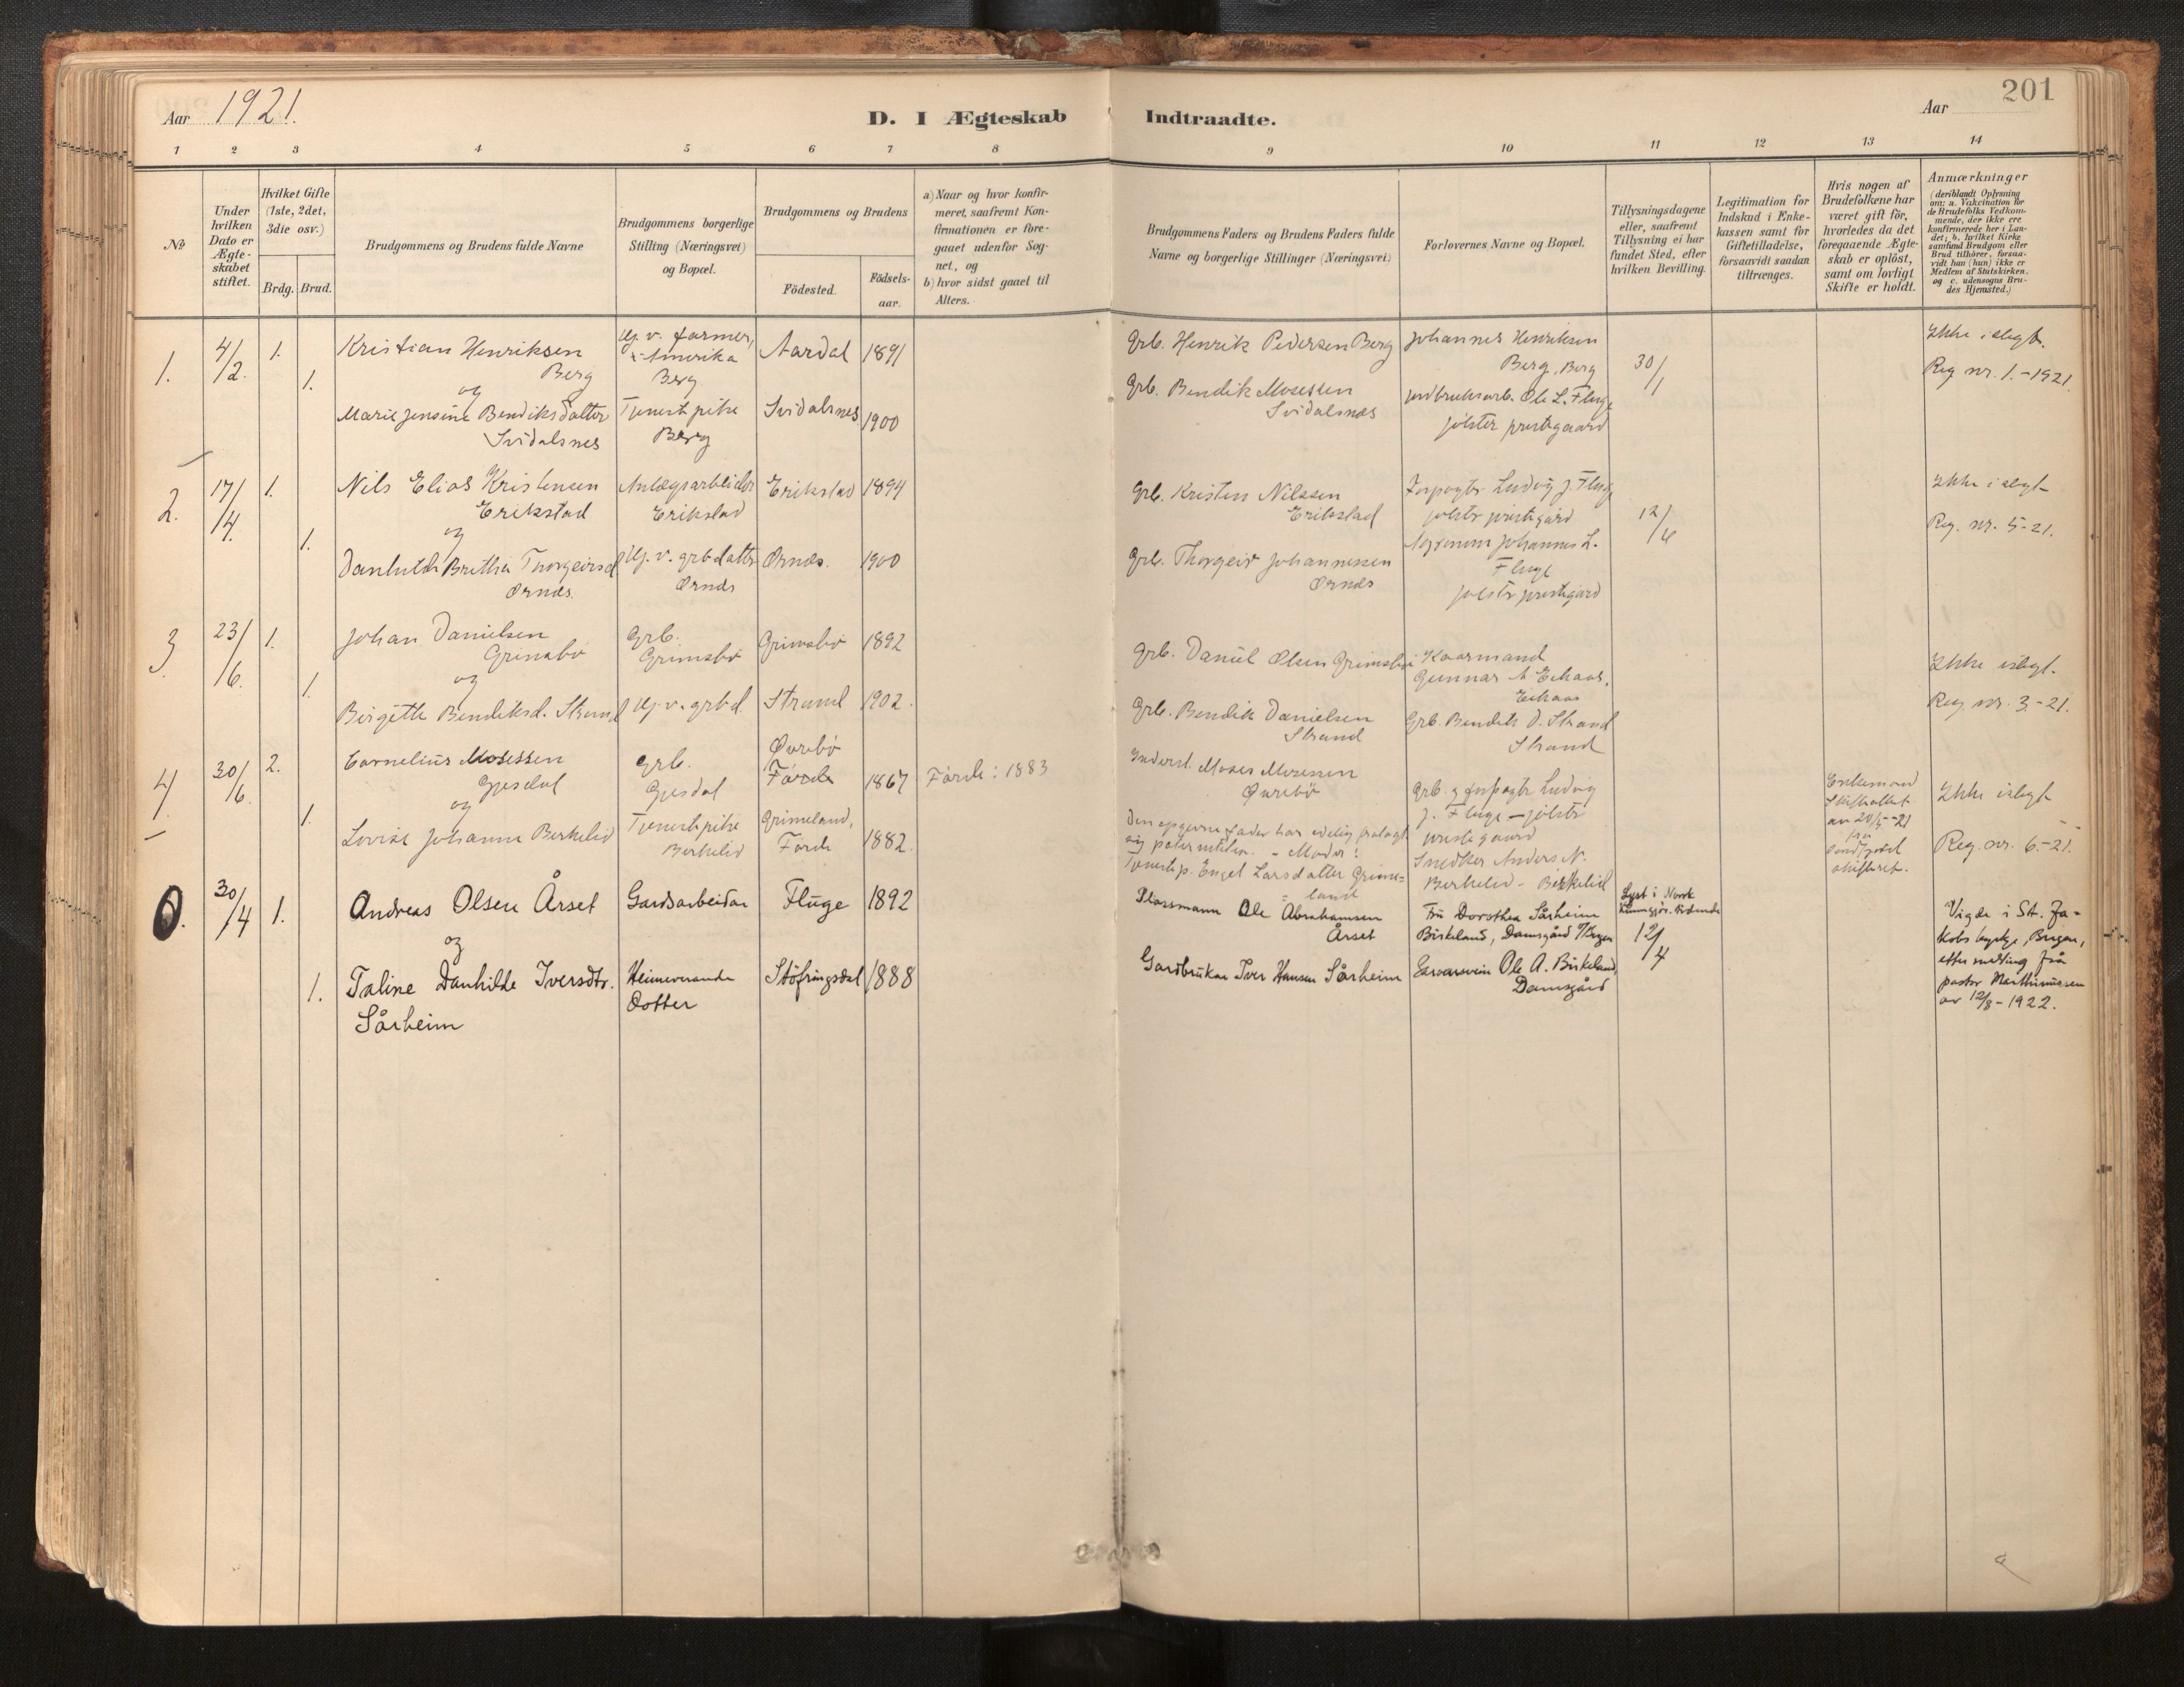 201
Aar 1921.
D. I Ægteskab Indtraadte.
Aar
1 2 3 4 5 6 7 8 9 10 11 12 13 14
No
Under hvilken Dato er Ægteskabet stiftet.
Hvilket Gifte (1ste, 2det, 3die osv.)
Brdg. Brud.
Brudgommens og Brudens fulde Navne
Brudgommens borgerlige Stilling (Næringsvei) og Bopæl.
Brudgommens og Brudens
Födested.
Födselsaar.
a) Naar og hvor konfirmeret, saafremt Konfirmationen er foregaaet udenfor Sognet, og
b) hvor sidst gaaet til Alters.
Brudgommens Faders og Brudens Faders fulde Navne og borgerlige Stillinger (Næringsvei)
Forlovernes Navne og Bopæl.
Tillysningsdagene eller, saafremt Tillysning ei har fundet Sted, efter hvilken Bevilling.
Legitimation for Indskud i Enkekassen samt for Giftetilladelse, forsaavidt saadan tiltrænges.
Hvis nogen af Brudefolkene har været gift för, hvorledes da det foregaaende Ægteskab er oplöst, samt om lovligt Skifte er holdt.
Anmærkninger
(deriblandt Oplysning om: a. Vakcination for de Brudefolks Vedkommende, der ikke ere konfirmerede her i Landet; b. hvilket Kirkesamfund Brudgom eller Brud tilhörer, forsaavidt han (hun) ikke er Medlem af Statskirken, og c. udensogns Brudes Hjemsted.)
1. 4/2. 1. Kristian Henriksen Berg
Hj. v. farmer, i Amerika Berg
Aardal 1891
Grb. Henrik Pedersen Berg
Johannes Henriksen Berg, Berg
30/1
Ikke i slegt.
Reg nr. 1. - 1921.
og
1. Marie Jensine Bendiksdatter Svidalsnes
Tjenestpike Berg
Svidalsnes 1900
Grb. Bendik Mosessen Svidalsnes
Jordbruksarb. Ole L. Fluge
Jølster prestegaard
2. 17/4. 1. Nils Elias Kristensen Erikstad
Anlægsarbeider Erikstad
Erikstad 1894
Grb. Kristen Nilssen Erikstad
Forpagtr Ludvig J. Fluge
jølstr prestigård
12/
Ikke i slegt
Reg. nr. 5-21.
og
1. Danhilde Brithe Thorgeirsd Ørnes.
Hj. v. grbdatter Ørnes
Ørnes. 1900
Grb. Thorgeir Johannessen Ørnes
Johannes L. Fluge
jølstr prestigård
3. 23/6. 1. Johan Danielsen Grimsbø
Grb. Grimsbø
Grimsbø 1892
Grb. Daniel Olsen Grimsbø
Kaarmand Gunnar A Eikaas, Eikaas
Ikke i slegt.
Reg nr. 3. - 21.
og
1. Birgithe Bendiksd. Strand
Hj. v. grbd.
Strand 1902.
Grb. Bendik Danielsen Strand
Grb. Bendik D. Strand
Strand
4. 30/6. 2. Cornelius Mosessen Gjesdal
grb. Gjesdal
Øvrebø Førde 1867
Førde: 1883
Inderst. Moses Mosessen Øvrebø
Grb. og forpagtr Ludvig J. Fluge - jølstr prestegaard
Enkemand
Skifteattest av 20/5-21 fra skifteret.
Ikke i slegt
Reg. nr. 6. - 21.
og
1. Lovise Johanne Berkelid
Tjenestpike Berkelid
Grimeland, Førde 1882.
Den opgivne fader har edelig fralagt sig paterniteten. - Moder: Tjenestp. Engel Larsdatter Grimeland
Snedker Anders N. Berkelid - Berkelid
0. 30/4 1. Andreas Olsen Årset
Gardsarbeidar
Fluge 1892
Plassmann Ole Abrahamsen Årset
Fru Dorothea Sårheim Birkeland, Damsgård v/Bergen
Lyst i Norsk Kunngjør. tidende
12/4
Vigde i St. Jakobs kyrkje, Bergen, etter melding frå pastor Marthinussen av 12/8 - 1922.
og
1. Taline Danhilde Iversdtr. Sårheim
Heimeverande Dotter
Støfringsdal 1888
Gardbrukar Iver Hansen Sårheim
Ole A. Birkeland, Damsgård